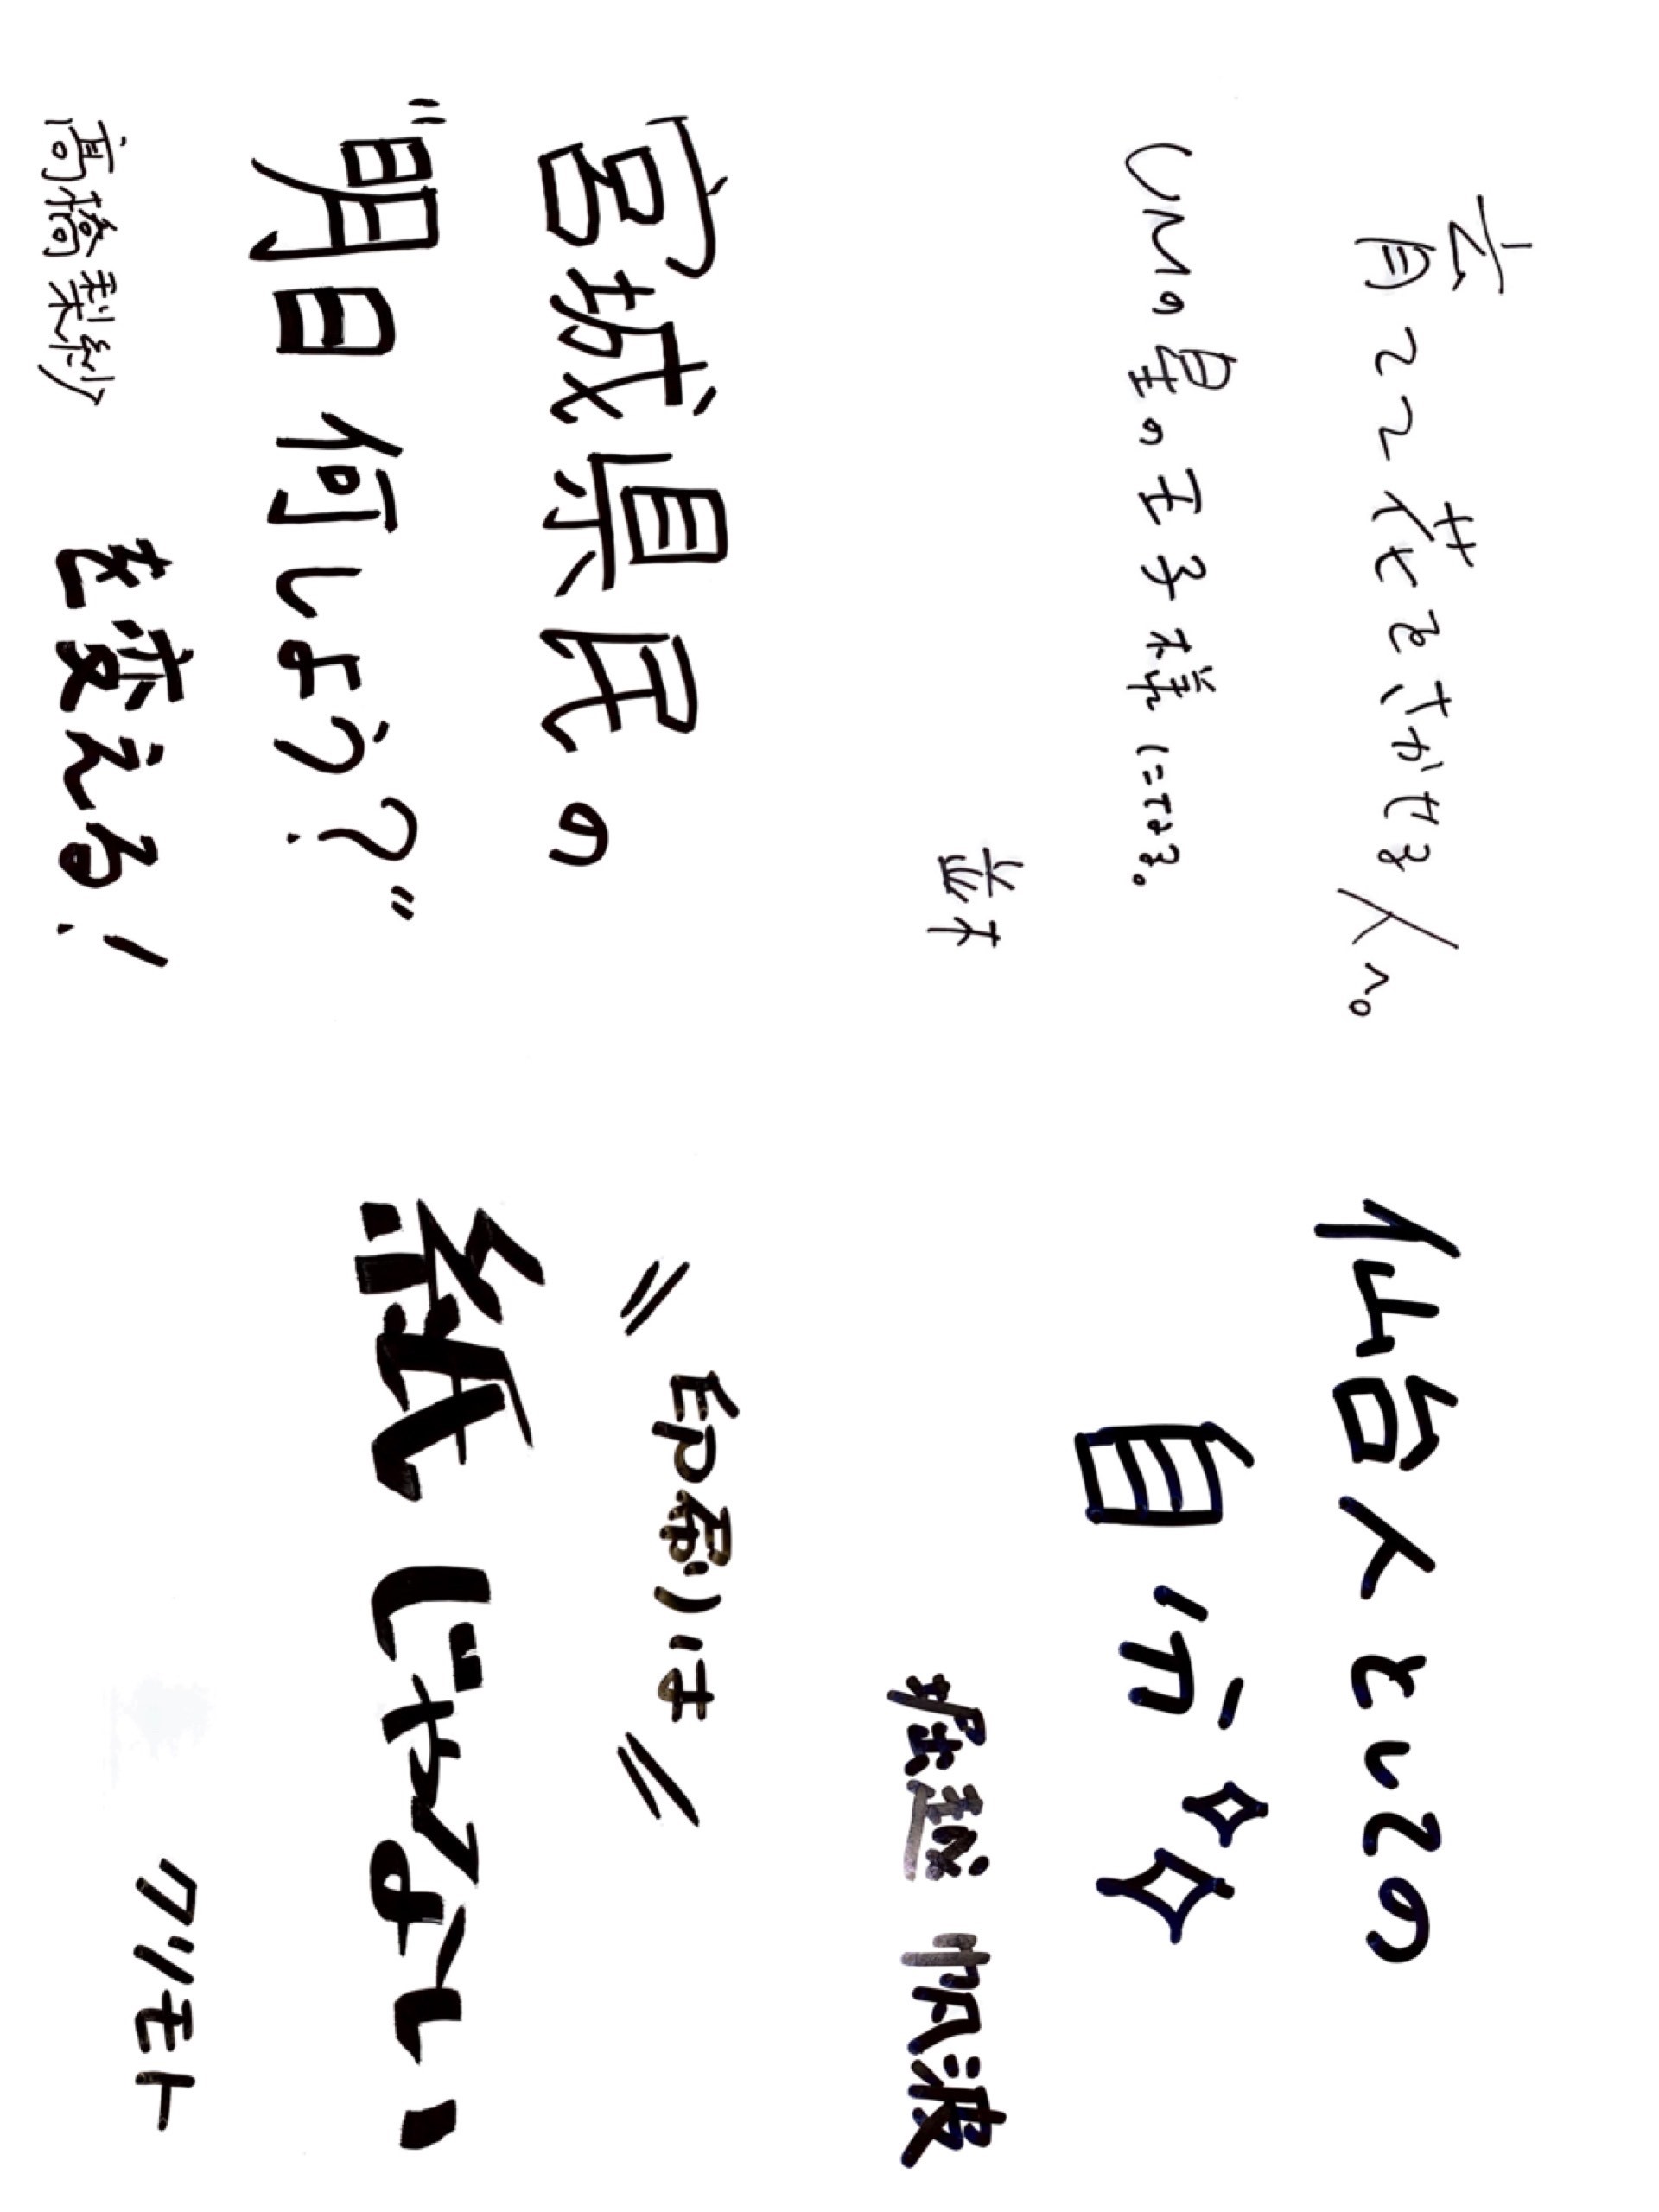 育てて花をさかせる人へ。
UMの星の王子様になる。
並木
仙台人としての
自分
堀越 帆波
宮城県民の
"明日何しよう?"
を変える!
高橋梨紗
\\ 印刷は //
紙じゃない
クリモト